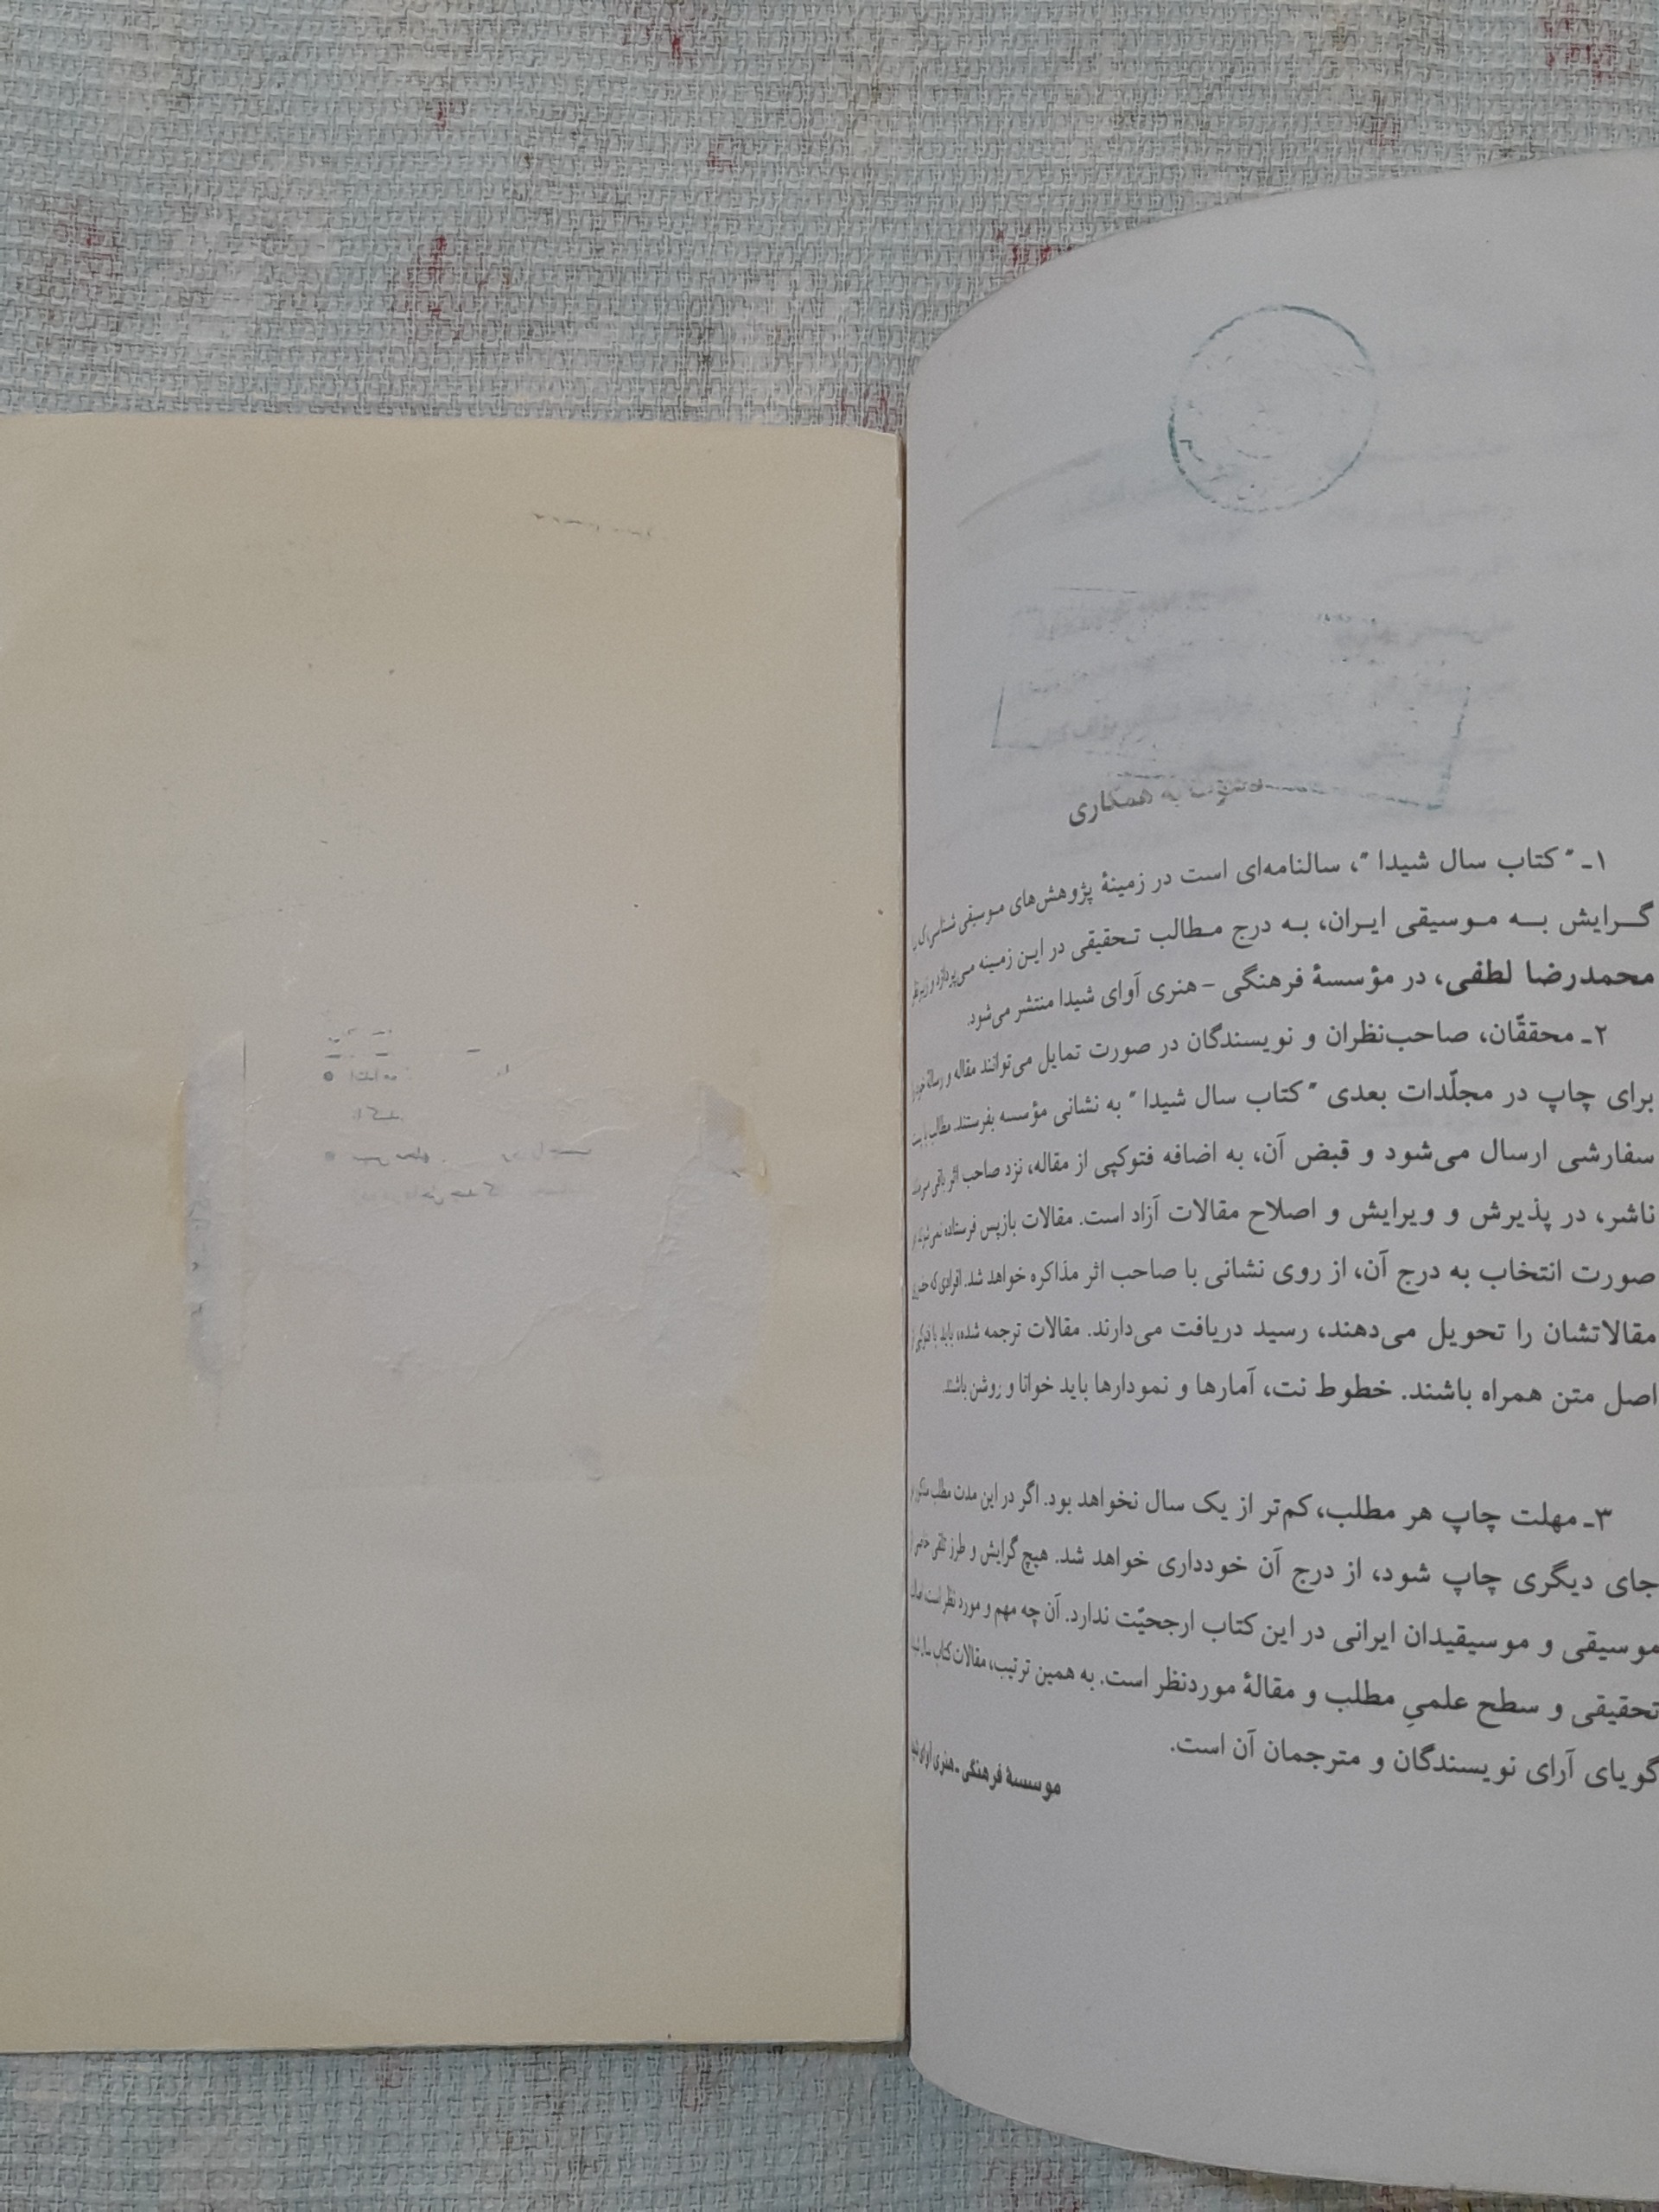 همکاری
۱ـ "کتاب سال شیدا"، سالنامه‌ای است در زمینهٔ پژوهش‌های موسیقی شناسی‌ای با
گرایش به موسیقی ایران، به درج مطالب تحقیقی در این زمینه می‌پردازد و زیر نظر
محمدرضا لطفی، در مؤسسهٔ فرهنگی - هنری آوای شیدا منتشر می‌شود.
۲ـ محققّان، صاحب‌نظران و نویسندگان در صورت تمایل می‌توانند مقاله و رسالهٔ خود را
برای چاپ در مجلّدات بعدی "کتاب سال شیدا" به نشانی مؤسسه بفرستند. مطالب با پست
سفارشی ارسال می‌شود و قبض آن، به اضافه فتوکپی از مقاله، نزد صاحب اثر باقی می‌ماند.
ناشر، در پذیرش و ویرایش و اصلاح مقالات آزاد است. مقالات بازپس فرستاده نمی‌شوند. در
صورت انتخاب به درج آن، از روی نشانی با صاحب اثر مذاکره خواهد شد. افرادی که
مقالاتشان را تحویل می‌دهند، رسید دریافت می‌دارند. مقالات ترجمه شده، باید با فتوکپی از
اصل متن همراه باشند. خطوط نت، آمارها و نمودارها باید خوانا و روشن باشند.
۳ـ مهلت چاپ هر مطلب، کم‌تر از یک سال نخواهد بود. اگر در این مدت مطلب مذکور در
جای دیگری چاپ شود، از درج آن خودداری خواهد شد. هیچ گرایش و طرز تلقی خاصی از
موسیقی و موسیقیدان ایرانی در این کتاب ارجحیّت ندارد. آن چه مهم و مورد نظر است،
تحقیقی و سطح علمیِ مطلب و مقالهٔ موردنظر است. به همین ترتیب، مقالات کتاب سال شیدا
گویای آرای نویسندگان و مترجمان آن است.
موسسهٔ فرهنگی ـ هنری آوای شیدا